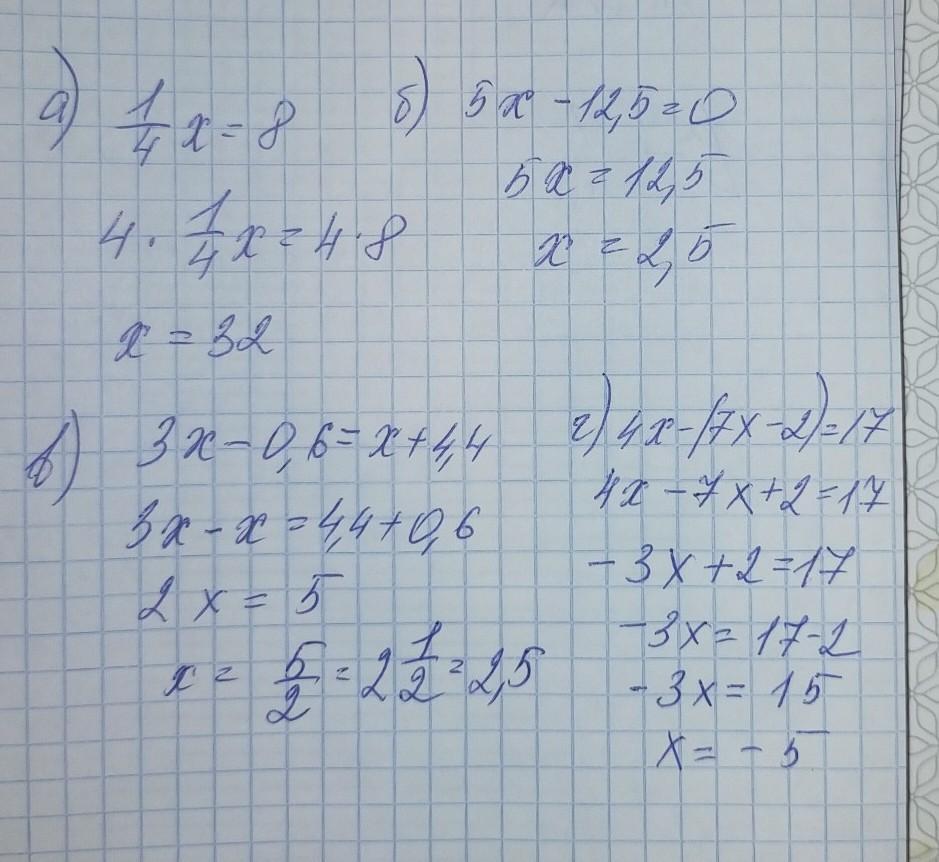 а) 1/4 x = 8
4 · 1/4 x = 4 · 8
x = 32
б) 5x - 12,5 = 0
5x = 12,5
x = 2,5
в) 3x - 0,6 = x + 4,4
3x - x = 4,4 + 0,6
2x = 5
x = 5/2 = 2 1/2 = 2,5
г) 4x - (7x - 2) = 17
4x - 7x + 2 = 17
-3x + 2 = 17
-3x = 17 - 2
-3x = 15
x = -5